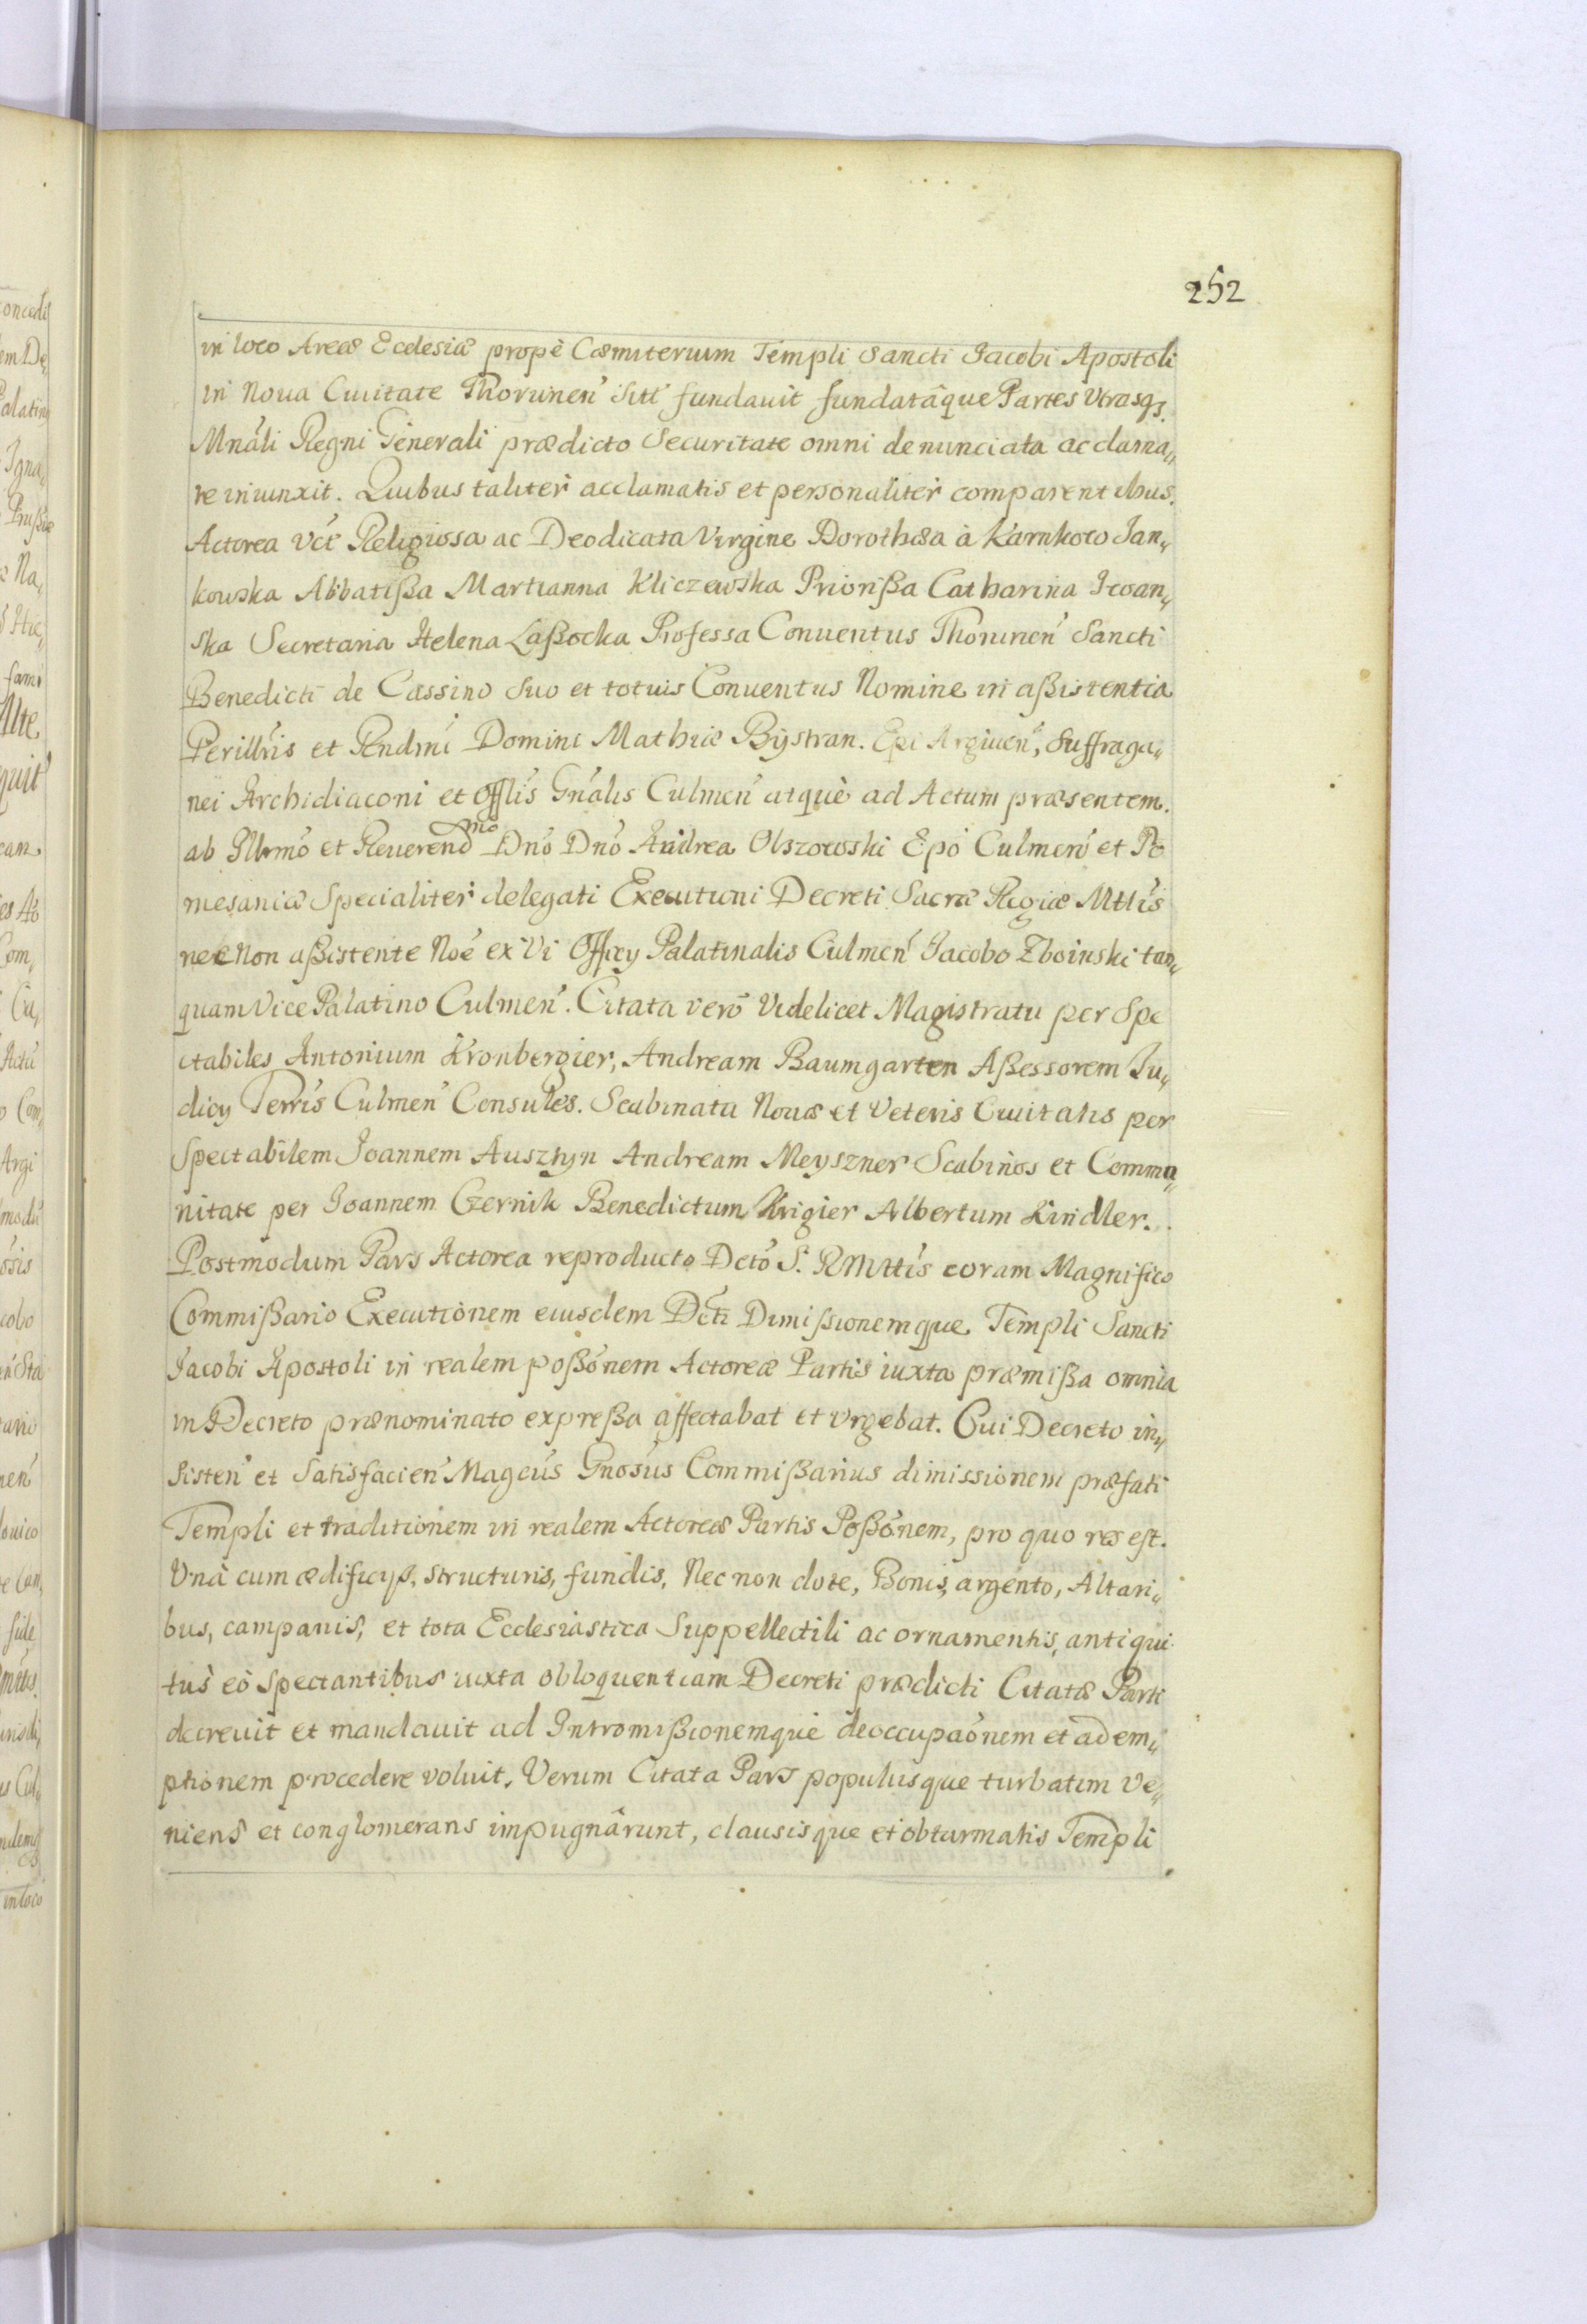 252
in loco Areæ Ecclesiæ propè Cæmiterium Templi Sancti Jacobi Apostoli
in Noua Ciuitate Thorunen̕ Sitt̕ fundauit fundatâque Partes Vtrasqȝ.
Mnáli Regni Generali prædicto Securitate omni denunciata acclama„
re iniunxit. Quibus taliter acclamatis et personaliter comparentibus.
Actorea vct̕ Religiosa ac Deodicata Virgine Dorothæa à Karnkowo Jan„
kowska Abbatißa Martianna Kliczewska Priorißa Catharina Iwan„
ska Secretaria Helena Laßocka Professa Conuentus Thorunen̕ Sancti
Benedicti de Cassino Suo et totuis Conuentus Nomine in aßistentia
Perillŕis et Rndmi Domini Mathiæ Bÿstran. Epi Argiuen̕, Suffraga„
nei Archidiaconi et Offlis Gnális Culmen̕ atquè ad Actum præsentem.
ab Illrmo et Reuerendmo Dno Dno Andrea Olszowski Epo Culmen̕ et Po
mesaniæ Specialiter delegati Executioni Decreti Sacræ Regiæ Mttis
nec Non aßistente Noe ex Vi Officy Palatinalis Culmen̕ Jacobo Zboinski tan„
quam Vice Palatino Culmen̕. Citata vero Videlicet Magistratu per Spe
ctabiles Antonium Kronbergier, Andream Baumgarten Aßessorem Ju„
dicy Terris Culmen̕ Consules. Scabinatu Nouæ et Veteris Ciuitatis per
Spectabilem Joannem Ausztyn Andream Meyszner Scabinos et Commu„
nitate per Joannem Czernik Benedictum Krigier Albertum Kindler.
Postmodum Pars Actorea reproducto Dcto S. R Mttis coram Magnifico
Commißario Executionem eiusdem Dcti Dimißionemque Templi Sancti
Jacobi Apostoli in realem poßonem Actoreæ Partis iuxta præmißa omnia
in Decreto prænominato expreßa affectabat et vrgebat. Cui Decreto in„
sisten̕ et Satisfacien̕ Magcus Gnosus Commißarius dimissionem præfati
Templi et traditionem in realem Actoreæ Partis Poßonem, pro quo res est.
Vnà cum ædificijs, structuris, fundis, Nec non dote, Bonis, argento, Altari„
bus, campanis, et tota Ecclesiastica Suppellectili ac ornamentis, antiqui
tus eò Spectantibus iuxta obloquentiam Decreti prædicti Citatæ Parti
decreuit et mandauit ad Intromißionemque deoccupaónem et adem„
ptionem procedere voluit. Verum Citata Pars populusque turbatim Ve„
niens et conglomerans impugnârunt, clausisque et obturmatis Templi